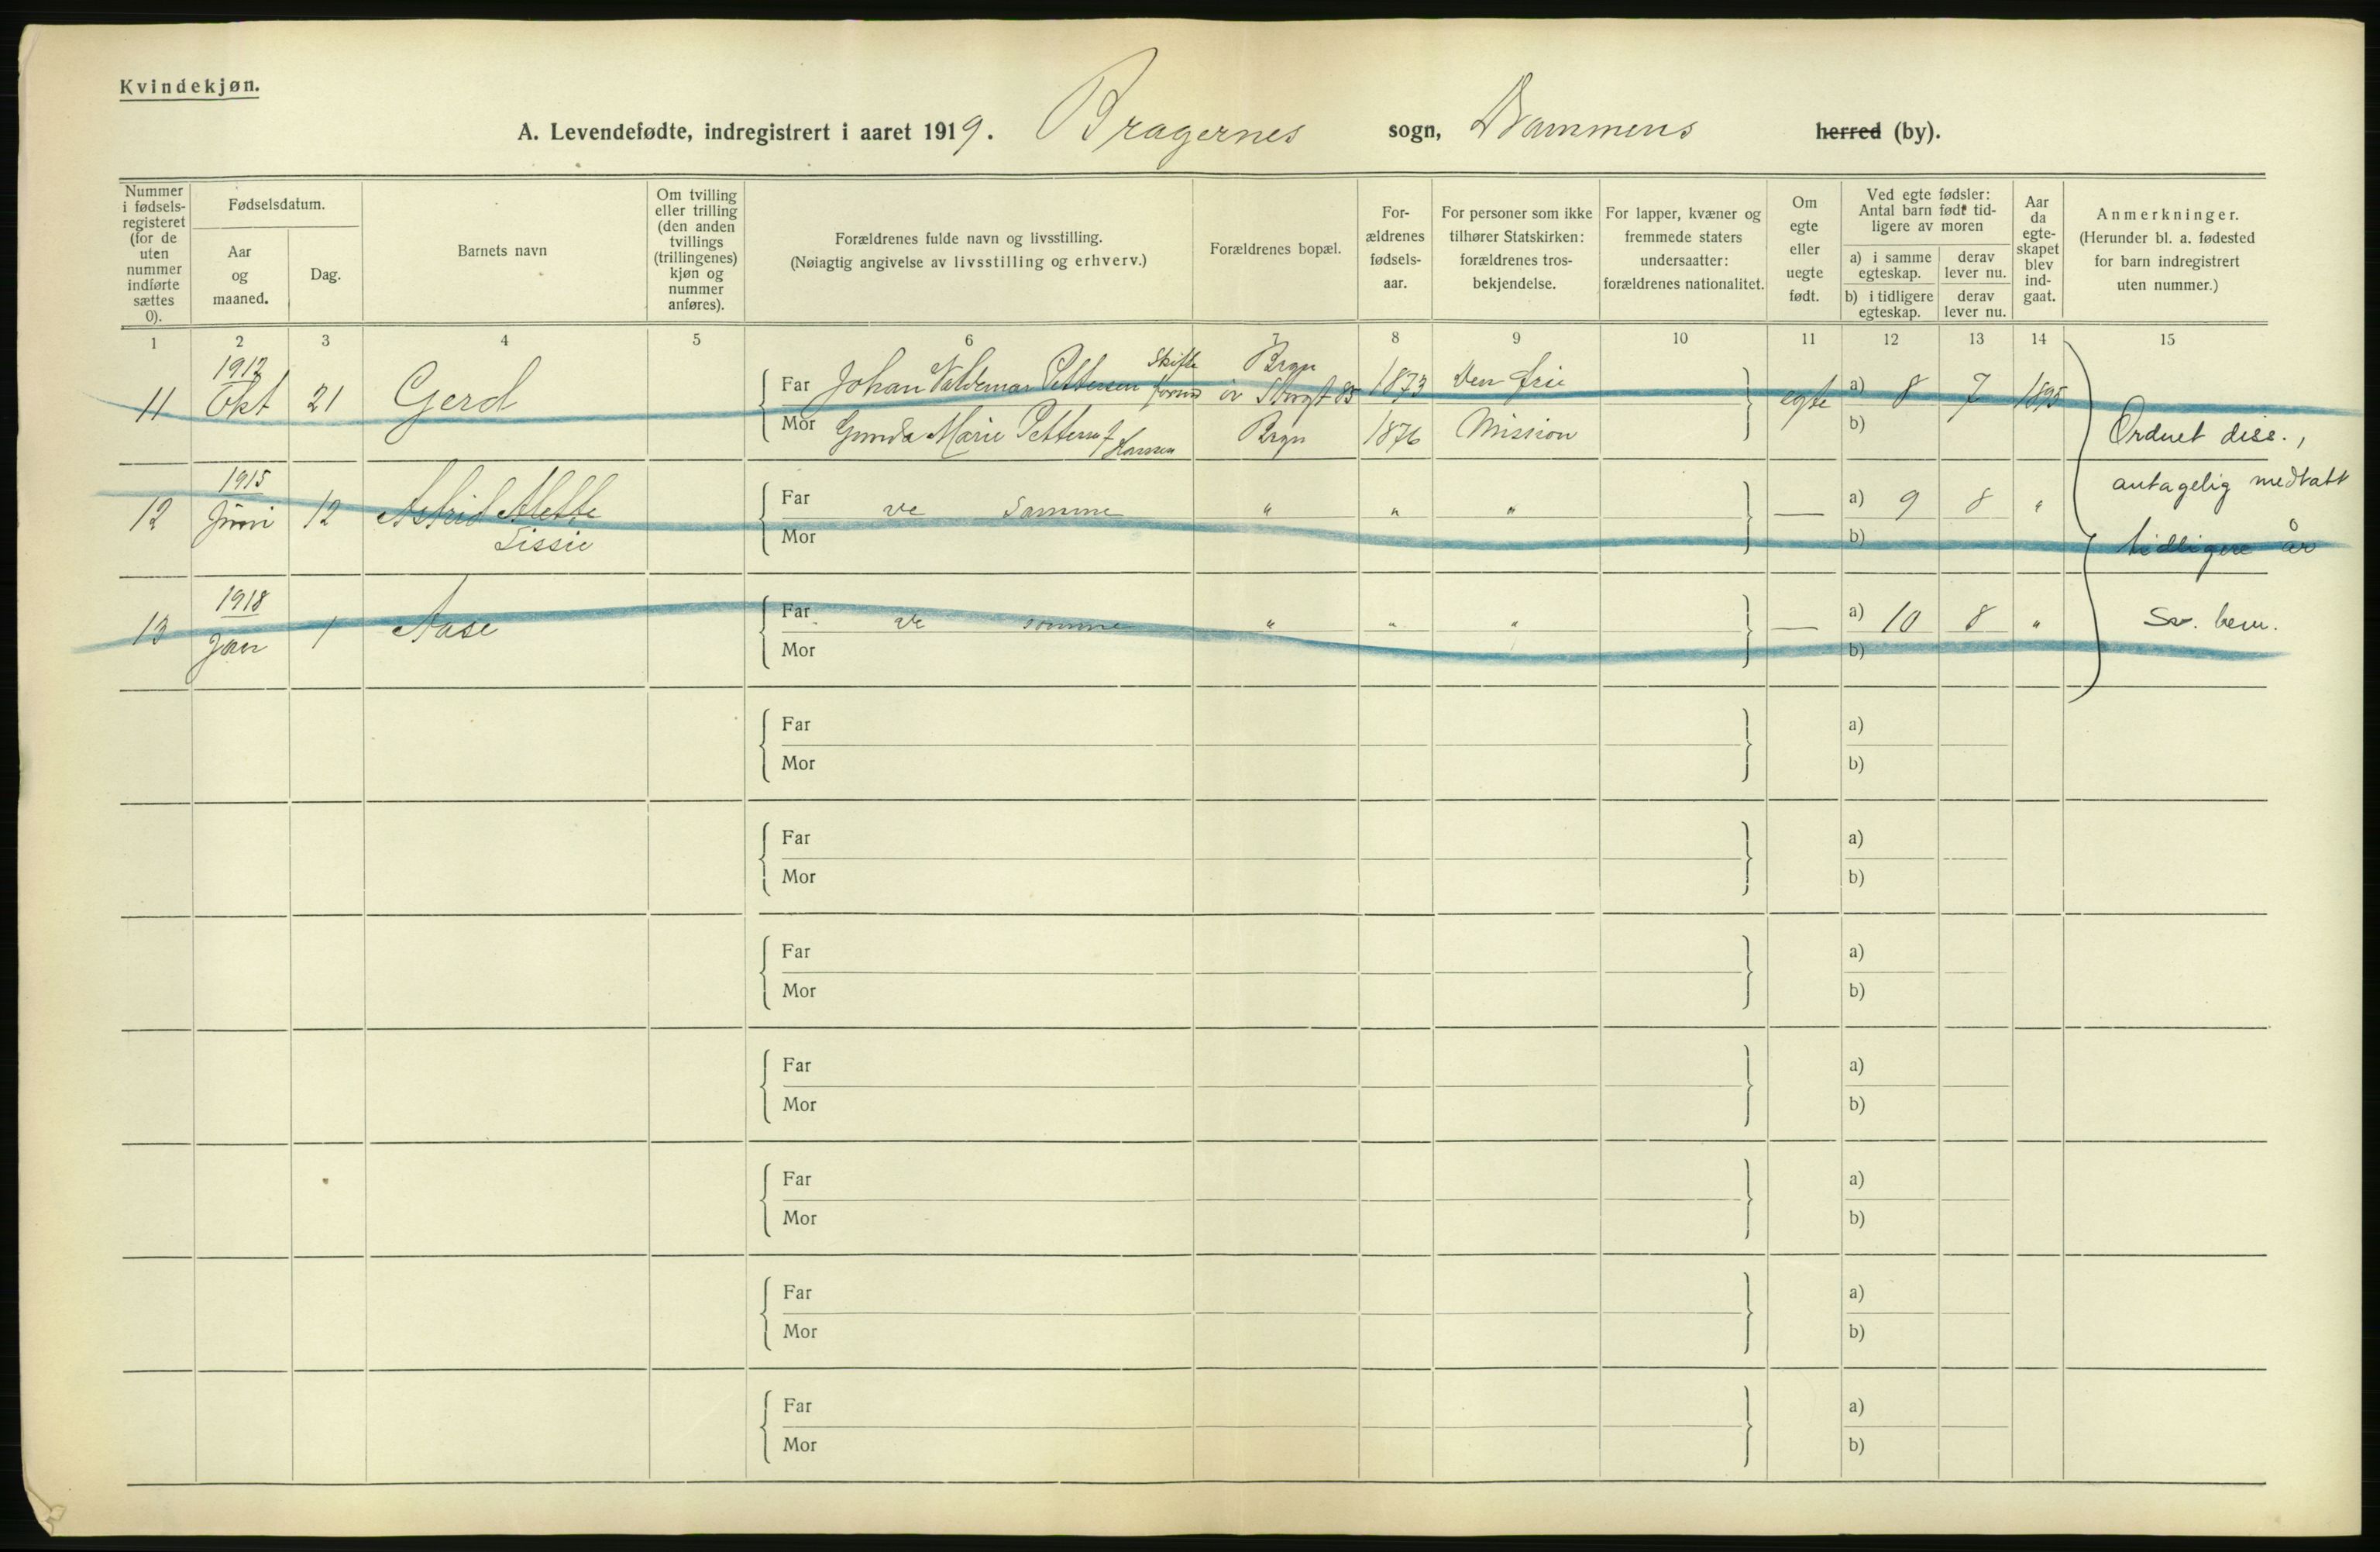 Kvindekjøn.
A. Levendefødte, indregistrert i aaret 1919. Bragernes sogn, Drammens herred (by).
Nummer i fødsels-registeret (for de uten nummer indførte sættes 0).
Fødselsdatum.
Aar og maaned.
Dag.
Barnets navn
Om tvilling eller trilling (den anden tvillings (trillingenes) kjøn og nummer anføres).
Forældrenes fulde navn og livsstilling.
(Nøiagtig angivelse av livsstilling og erhverv.)
Forældrenes bopæl.
For-ældrenes fødsels-aar.
For personer som ikke tilhører Statskirken: forældrenes tros-bekjendelse.
For lapper, kvæner og fremmede staters undersaatter: forældrenes nationalitet.
Om egte eller uegte født.
Ved egte fødsler: Antal barn født tid-ligere av moren
a) i samme egteskap.
derav lever nu.
b) i tidligere egteskap.
derav lever nu.
Aar da egte-skapet blev ind-gaat.
Anmerkninger.
(Herunder bl. a. fødested for barn indregistrert uten nummer.)
1 2 3 4 5 6 7 8 9 10 11 12 13 14 15
11 1912 Okt 21 Gerd
Far Johan Valdemar Pettersen Skifte Brgn 1873 Den frie egte a) 8 7 1895
Mor Gunda Marie Petters f Hansen Brgn 1876 Mission b)
Ordnet diss.,
antagelig medtatt
tidligere år
12 1915 Juni 12 Astrid Alette Lissie
Far de samme " " " — a) 9 8 "
Mor b)
13 1918 Jan 1 Aase
Far de samme " " " — a) 10 8 "
Mor b)
Sv. bem.
Far a)
Mor b)
Far a)
Mor b)
Far a)
Mor b)
Far a)
Mor b)
Far a)
Mor b)
Far a)
Mor b)
Far a)
Mor b)